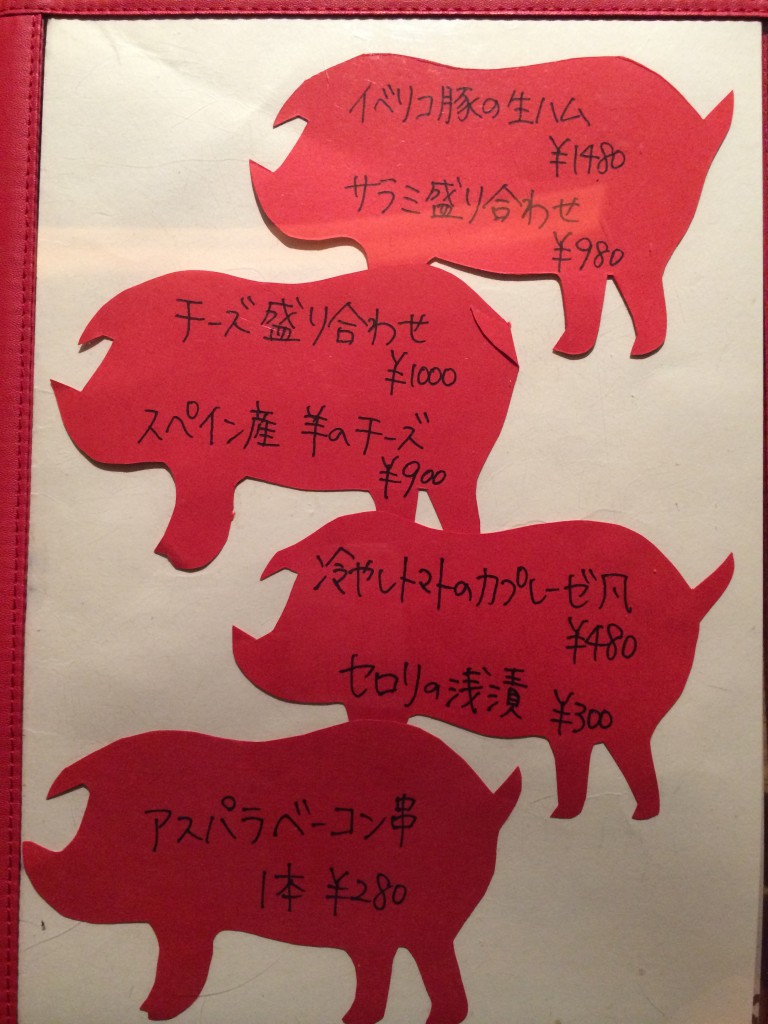 イベリコ豚の生ハム
¥1480
サラミ盛り合わせ
¥980
チーズ盛り合わせ
¥1000
スペイン産 羊のチーズ
¥900
冷やしトマトのカプレーゼ凡
¥480
セロリの浅漬 ¥300
アスパラベーコン串
1本 ¥280